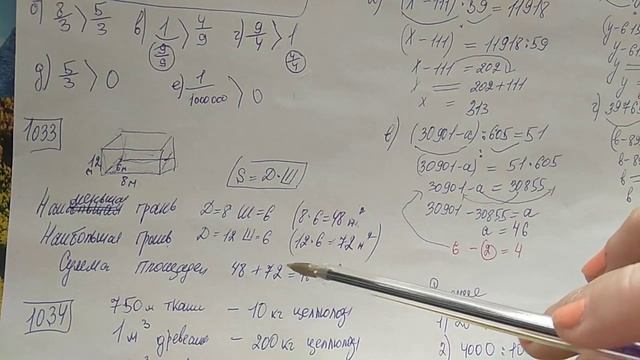 б) 8/3 > 5/3 в) 1 > 4/9 г) 9/4 > 1
9/9 4/4
д) 5/3 > 0 е) 1/1000000 > 0
1033
12 м 6м
8м
S = Д·Ш
Наименьшая грань Д=8 Ш=6 (8·6=48 м²)
Наибольшая грань Д=12 Ш=6 (12·6=72 м²)
Сумма площадей 48+72=
1034
750м ткани – 10 кг целлюлоз
1 м³ древесин – 200 кг целлюлоз
:59 = 11918
(x-111) = 11918:59
x-111 = 202
x = 202+111
x = 313
в) (30901-а):605=51
(30901-а) = 51·605
30901-а = 30855
30901-30855=а
а = 46
6 - 2 = 4
1) 20
2) 4000:10
(у-615
у-61
у=
у=
г) 39765
в-89
в-8
в=
в=